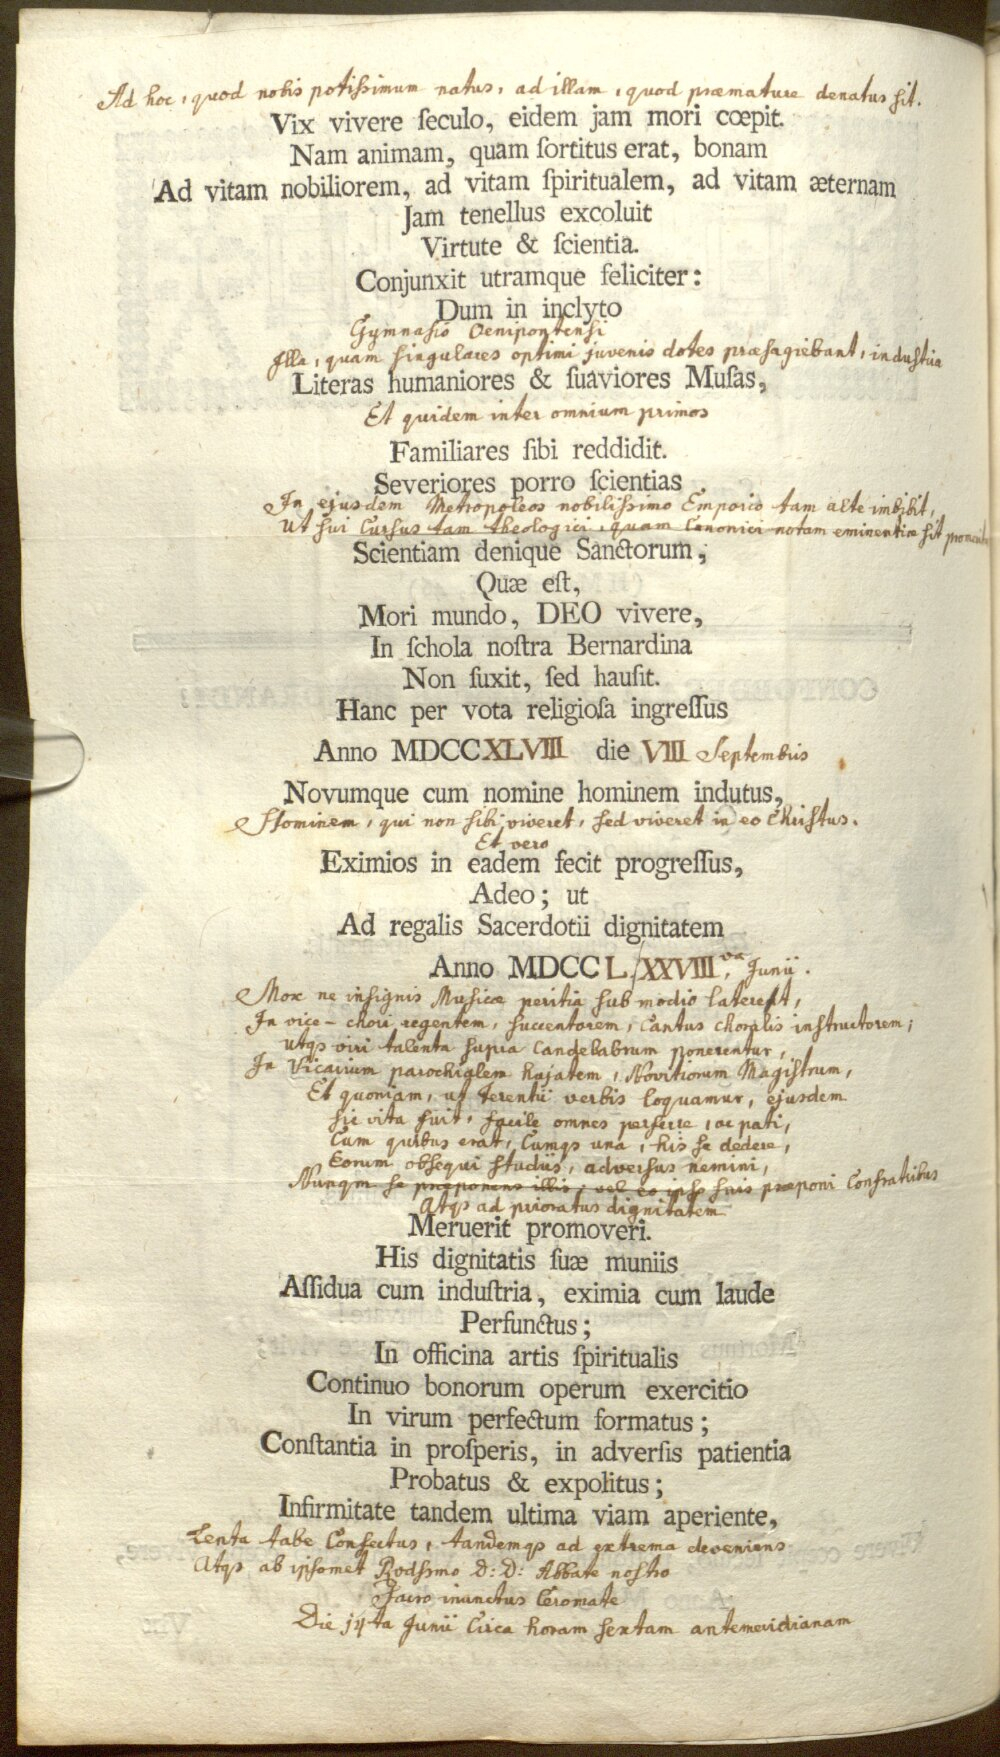 Ad hoc, quod nobis potiſsimum natus, ad illam, quod præmature denatus ſit.
Vix vivere ſeculo, eidem jam mori cœpit.
Nam animam, quam ſortitus erat, bonam
Ad vitam nobiliorem, ad vitam ſpiritualem, ad vitam æternam
Jam tenellus excoluit
Virtute & ſcientia.
Conjunxit utramque feliciter:
Dum in inclyto
Gymnasio Oenipontensi
Illa, quam ſingulares optimi juvenis dotes præsagiebant, industria
Literas humaniores & ſuaviores Muſas,
Et quidem inter omnium primos
Familiares ſibi reddidit.
Severiores porro ſcientias
In ejusdem Metropoleos nobiliſsimo Emporio tam alte imbibit,
Ut ſui Cursus tam theologici, quam Canonici notam eminentiæ ſit
Scientiam denique Sanctorum,
Quæ eſt,
Mori mundo, DEO vivere,
In ſchola noſtra Bernardina
Non ſuxit, ſed hauſit.
Hanc per vota religioſa ingreſſus
Anno MDCCXLVIII die VIII Septembris
Novumque cum nomine hominem indutus,
Hominem, qui non ſibi viveret, ſed viveret in eo Chriſtus.
Et vero
Eximios in eadem fecit progreſſus,
Adeo; ut
Ad regalis Sacerdotii dignitatem
Anno MDCCL. XXVIII va Junii.
Mox ne inſignis Musicæ peritia ſub modio lateret,
In vice-chori regentem, ſuccentorem, Cantus choralis inſtructorem;
Utqs viri talenta ſupra Candelabrum ponerentur,
In Vicarium parochialem hujatem, Novitiorum Magiſtrum,
Et quoniam, ut Terentii verbis loquamur, ejusdem
ſic vita fuit, facile omnes perferre, ac pati,
Cum quibus erat, Cumqs una, his ſe dedere,
Eorum obsequi ſtudiis, adversus nemini,
Nunqm ſe præponens illis; vel eo ipſo ſuis præponi Confratribus
Atqs ad prioratus dignitatem
Meruerit promoveri.
His dignitatis ſuæ muniis
Aſſidua cum induſtria, eximia cum laude
Perfunctus;
In officina artis ſpiritualis
Continuo bonorum operum exercitio
In virum perfectum formatus;
Conſtantia in proſperis, in adverſis patientia
Probatus & expolitus;
Infirmitate tandem ultima viam aperiente,
Lenta tabe Confectus, tandemqs ad extrema deveniens
Atqs ab ipsomet Rvdſsmo D: D: Abbate nostro
Sacro inunctus Ceromate
Die 14ta Junii Circa horam ſextam antemeridianam